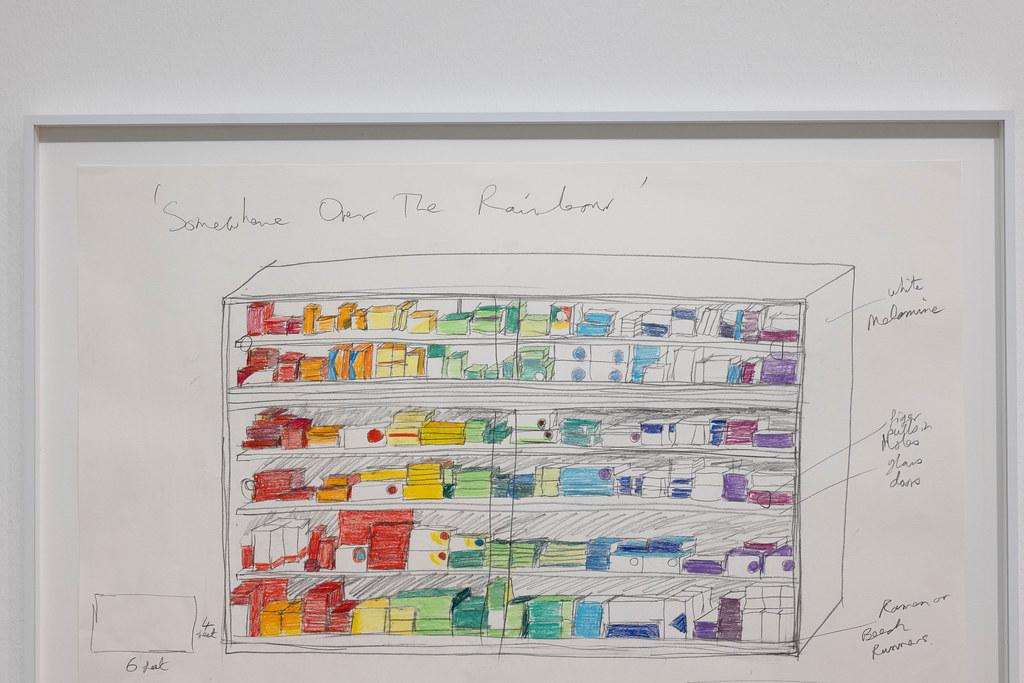 'Somewhere Over The Rainbow'
white
Melamine
finger
pulls in
Holes
glass
doors
Ramen or
Beech
Runners.
4
feet
6 feet